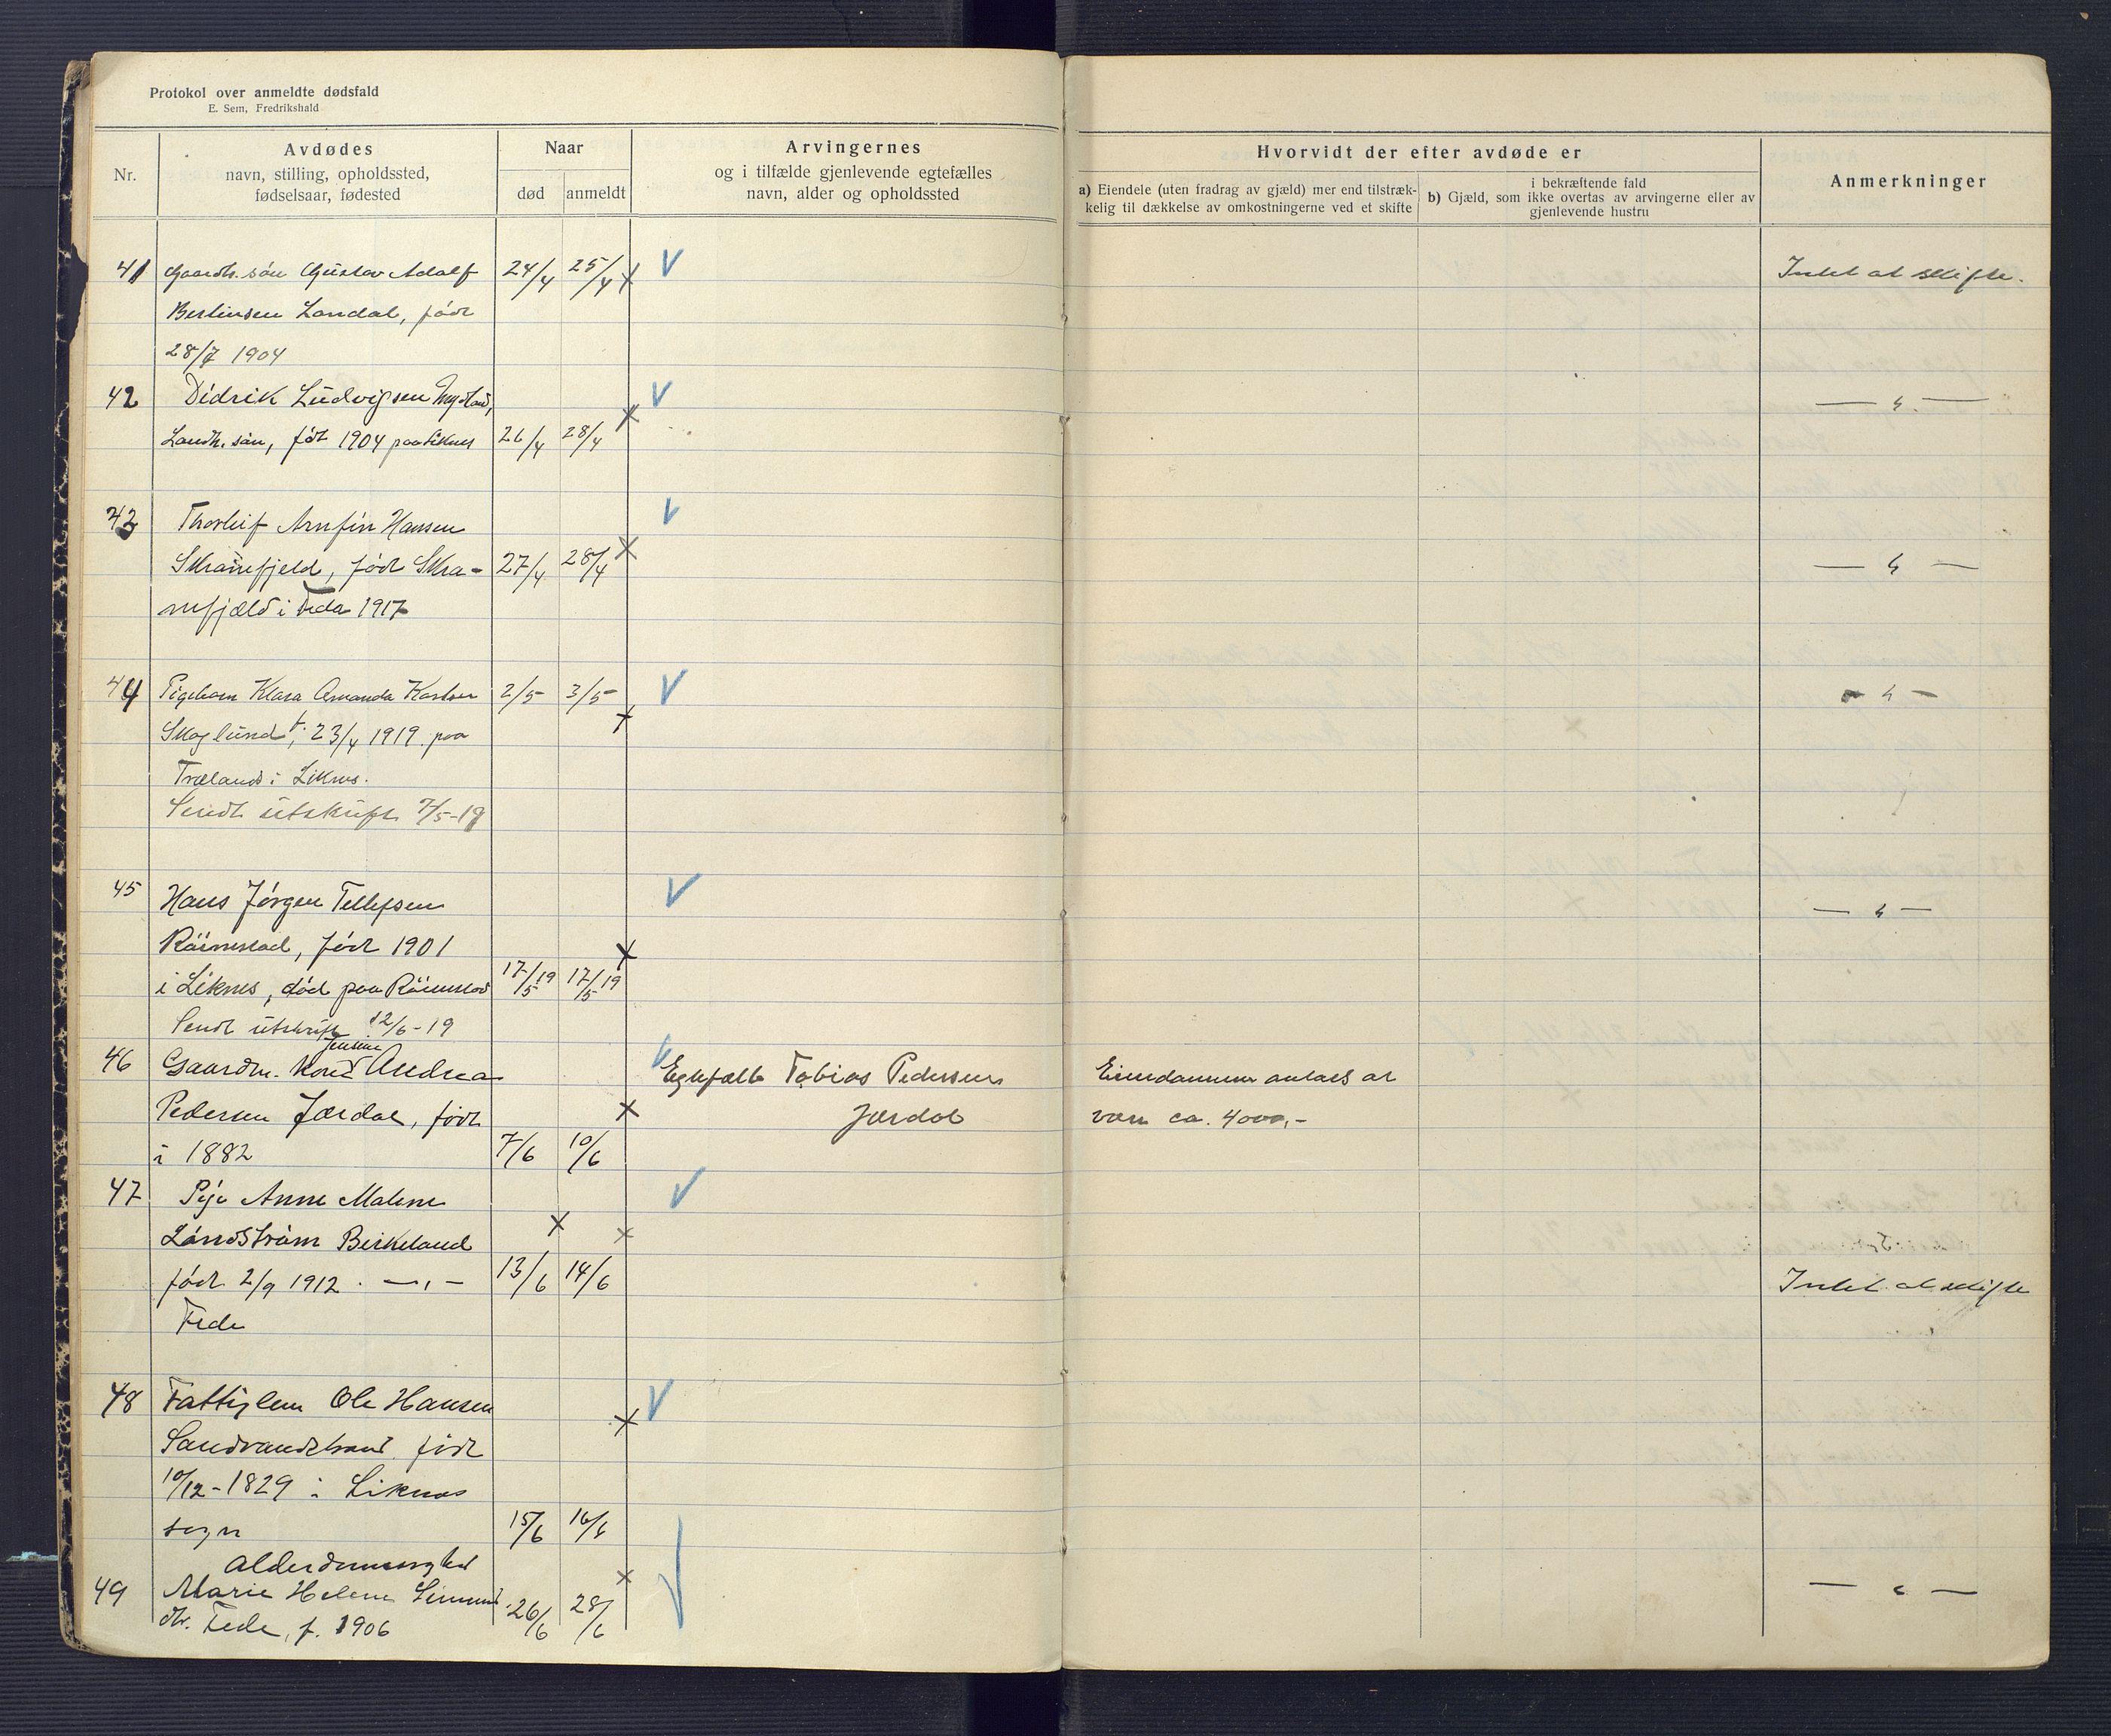 Protokol over anmeldte dødsfald
E. Sem, Fredrikshald
Nr.
Avdødes
navn, stilling, opholdssted,
fødselsaar, fødested
Naar
død
anmeldt
Arvingernes
og i tilfælde gjenlevende egtefælles
navn, alder og opholdssted
Hvorvidt der efter avdøde er
a) Eiendele (uten fradrag av gjæld) mer end tilstræk-
kelig til dækkelse av omkostningerne ved et skifte
i bekræftende fald
b) Gjæld, som ikke overtas av arvingerne eller av
gjenlevende hustru
Anmerkninger
41 Gaardb. søn Gustav Adolf 24/4 25/4 x V Intet at skifte.
Bertinsen Londal, född
28/7 1904
42 Didrik Ludvigsen V — " —
Landh. søn, föt 1904 paa Liknes 26/4 28/4 x
43 Thorleif Arnfin Hansen V
Skranefjeld, född Skra- 27/4 28/4 x — " —
nefjæld i Feda 1917
44 Pigebarn Klara Amanda Karlsen 2/5 3/5 x V — " —
Skoglund, f. 23/4 1919 paa
Træland i Liknes.
Sendt utskrift 7/5-19
45 Hans Jörgen Tellefsen V — " —
Röinestad, född 1901 x
i Liknes, död paa Röinestad 17/5 19 17/5 19
Sendt utskrift 12/6-19
Jensine
46 Gaardm. kone Andrea V Egtefælle Tobias Pedersen Eiendommen antaes at
Pedersen Jærdal, född x Jærdal være ca. 4000,-
i 1882 7/6 10/6
47 Pige Anne Malene V
Landström Birkeland x x
född 2/9 1912 . — " — 13/6 14/6 Intet at skifte
Fede
48 Fattiglem Ole Hansen V
Sandvandstrand född x
10/12-1829 i Liknes
sogn 15/6 16/6
Alderdomssvaghed
49 Marie Helene Simund 26/6 28/6 x V — " —
dtr. Fede, f. 1906